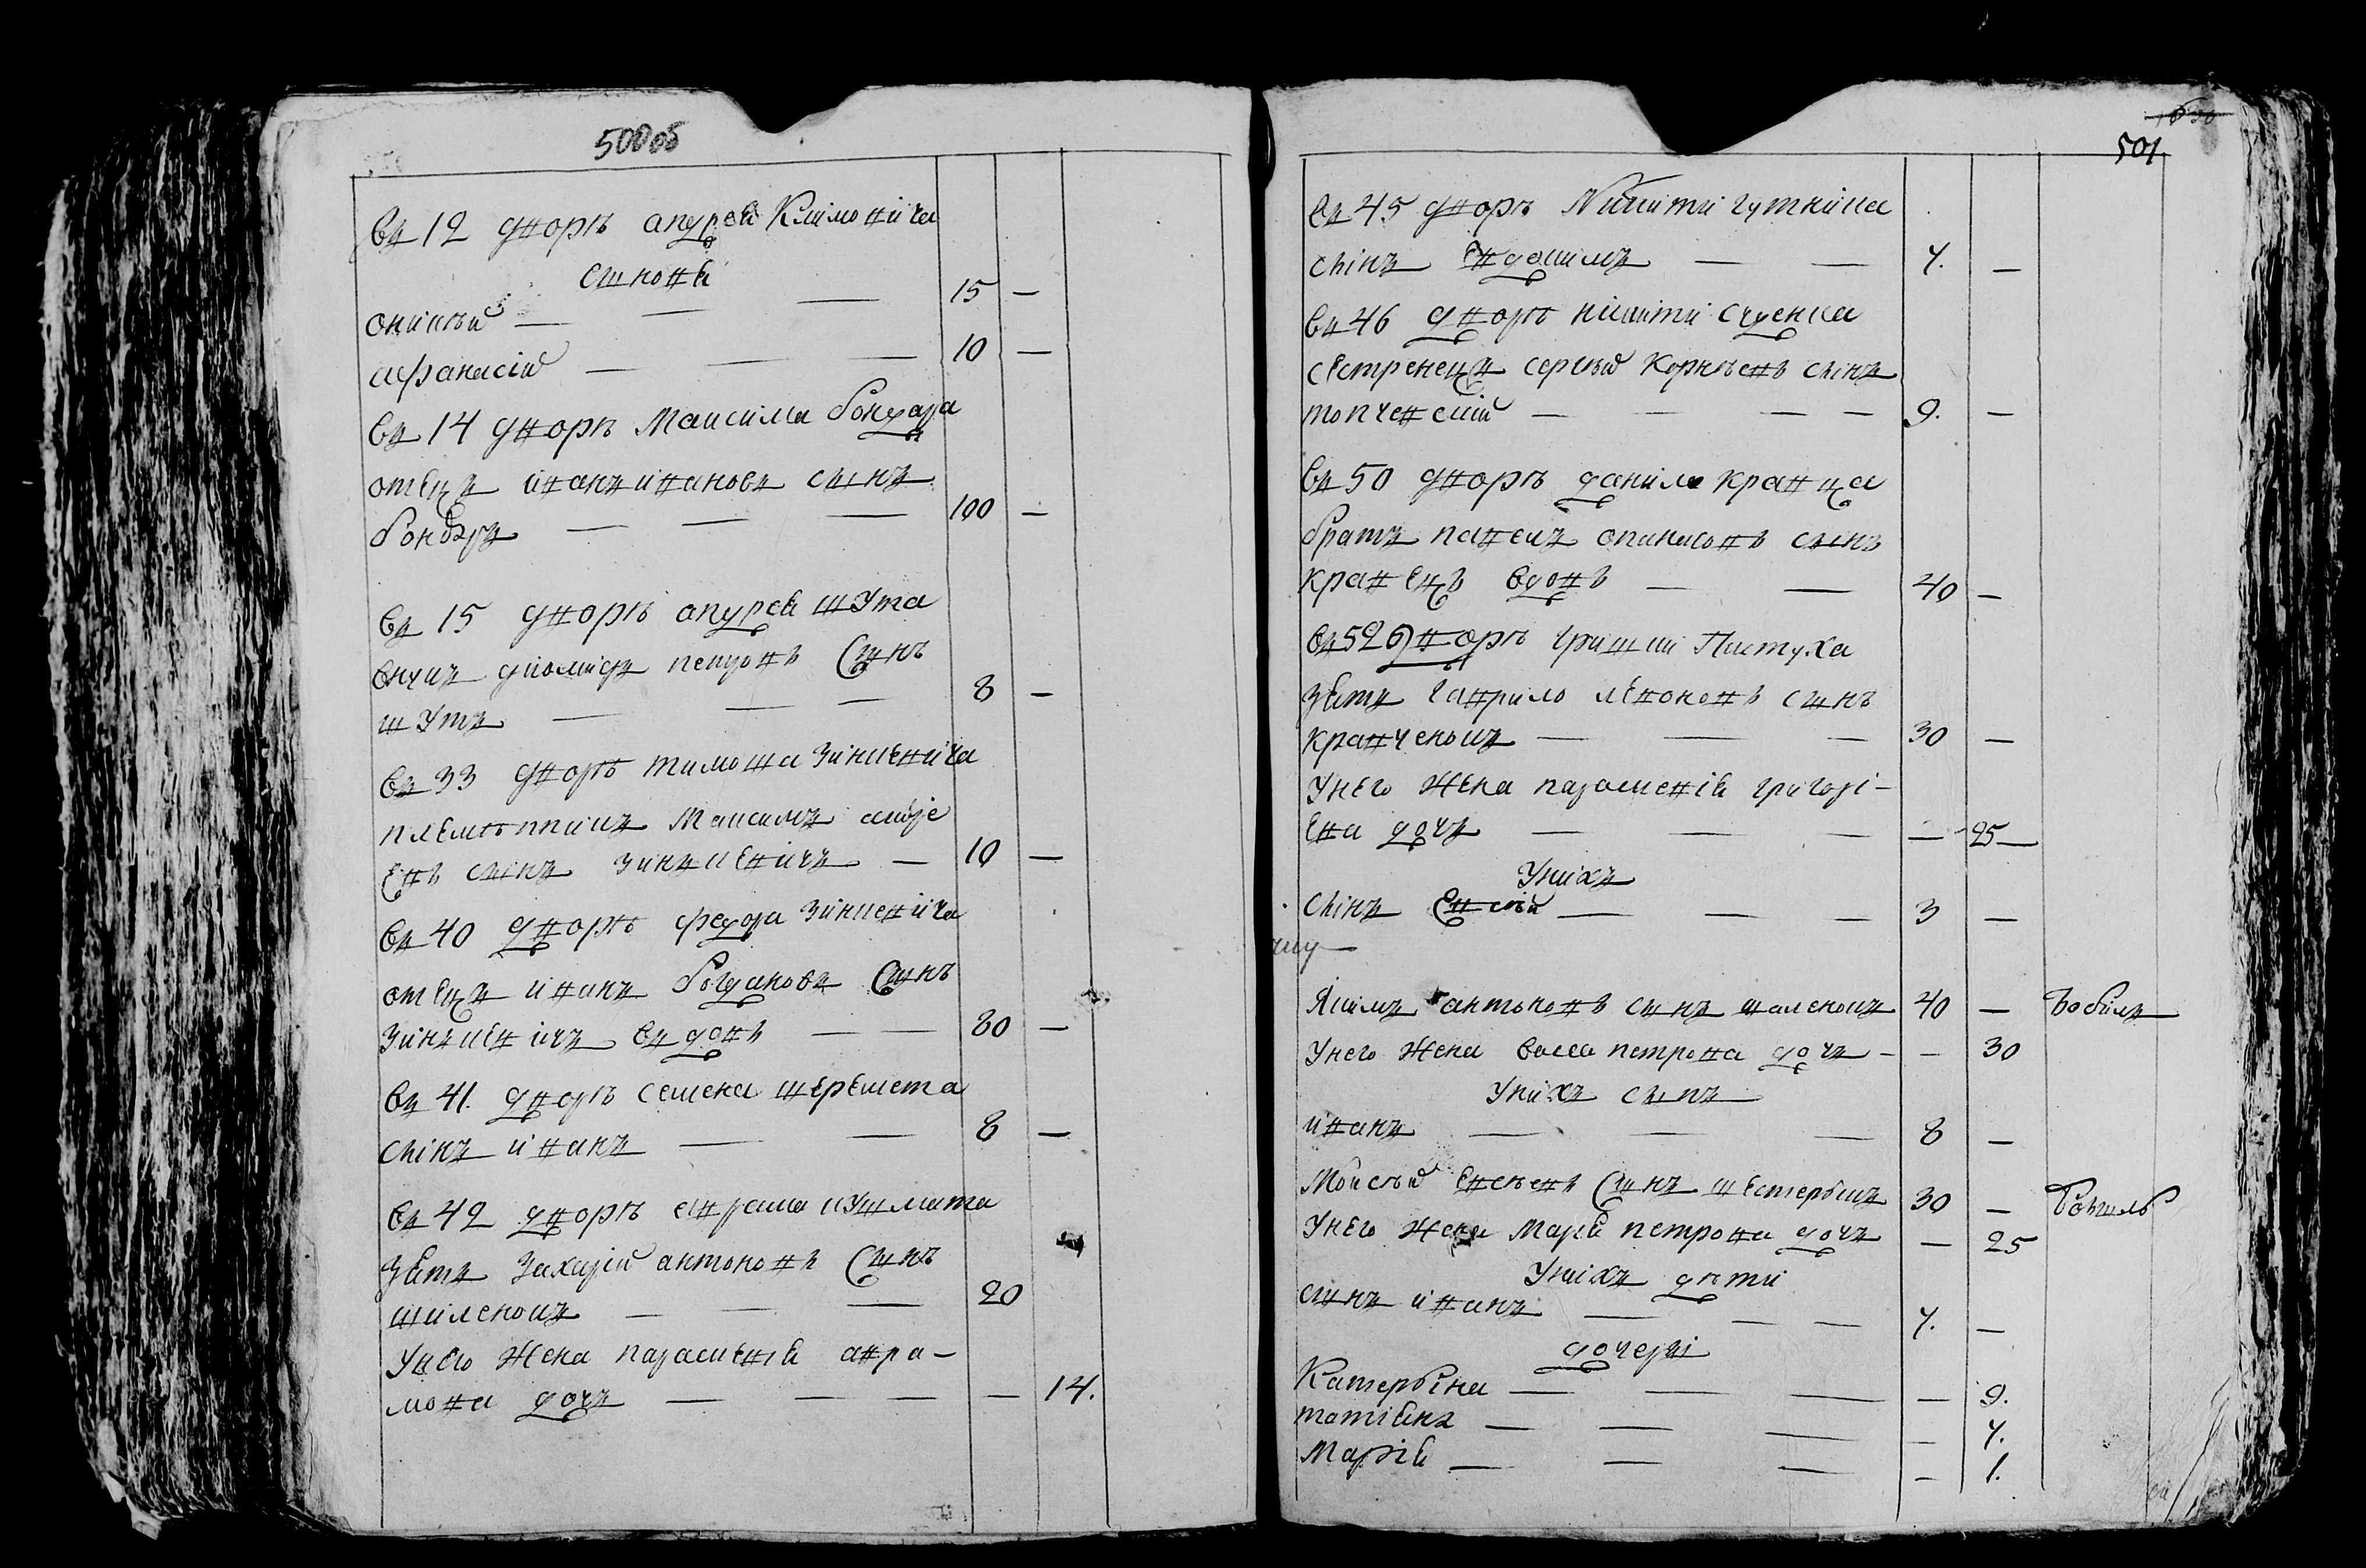 500об
въ 12 дворѣ андрея Климовича
сынове
онисѣй — — — 15 —
афанасій — — — 10 —
въ 14 дворѣ Максима бондара
отецъ иванъ ивановъ сынъ
бондаръ — — — 100 —
въ 15 дворѣ андрея шута
внукъ диомидъ сынъ
шутъ — — — 8 —
въ 33 дворѣ тимоша Зинкевича
племѣнникъ Максимъ андре
евъ сынъ зинъкевичъ — 10 —
въ 40 дворѣ федора Зинкевича
отецъ иванъ богдановъ сынъ
зинъкевичъ вдовъ — — 80 —
въ 41. дворѣ семена шеремета
сынъ иванъ — — 8 —
въ 42 дворѣ аврама
зять Захарій антоновъ сынъ
шиленокъ — — — 20
у него жена парасковія авра-
мова дочъ — — — — 14.
501
въ 45 дворѣ Микити гуткина
сынъ Евдокимъ — — 7. —
въ 46 дворѣ никити
сестренецъ сергѣй Корнѣевъ сынъ
топчевскій — — — — 9. —
въ 50 дворѣ данила кравца
братъ павелъ опанасовъ сынъ
кравецъ вдовъ — — 40 —
въ 52 дворѣ гришки Пастуха
зять гаврило сынъ
кравченокъ — — — 30 —
у него жена парасковія григорі-
ева дочъ — — — — 25 —
у нихъ
сынъ Евсѣй — — — 3 —
Якимъ антоновъ сынъ шаленокъ 40 — бобиль
у него жена васса петрова дочъ — — 30
у нихъ сынъ
иванъ — — — 8 —
Мойсѣй Евсѣевъ сынъ 30 — бобиль
у него жена Марія петрова дочъ — 25
у нихъ дѣти
сынъ иванъ — — — 7. —
дочери
Катерина — — — — 9.
татіяна — — — — 7.
Марія — — — — 1.